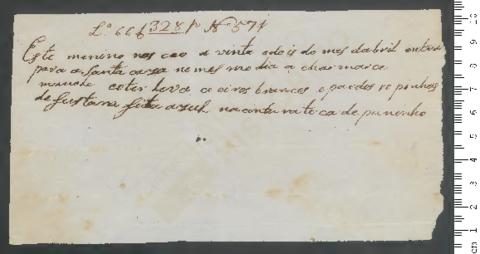 L.º 66 f 328 N 571
Este menino nas ceo a vinte e do is do mes dabril entrou
para a santa caza no mes mo dia a char marca
mande coter leva co eiros brancos e pardos ro pinhas
de fustam fita asul na cintura to ca de paninho